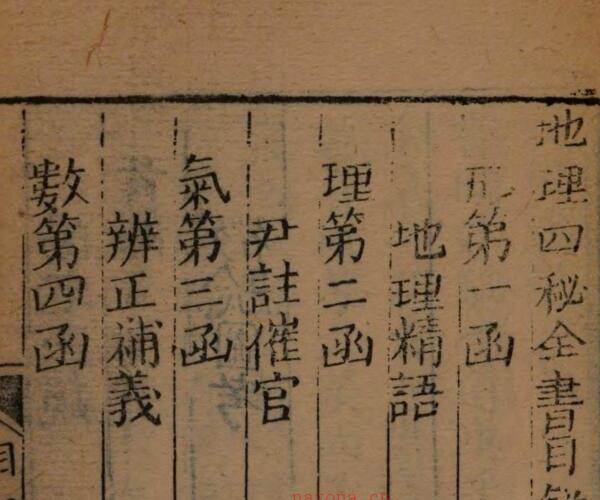 地理四秘全書目錄
形第一函
地理精語
理第二函
尹註催官
氣第三函
辨正補義
數第四函
目